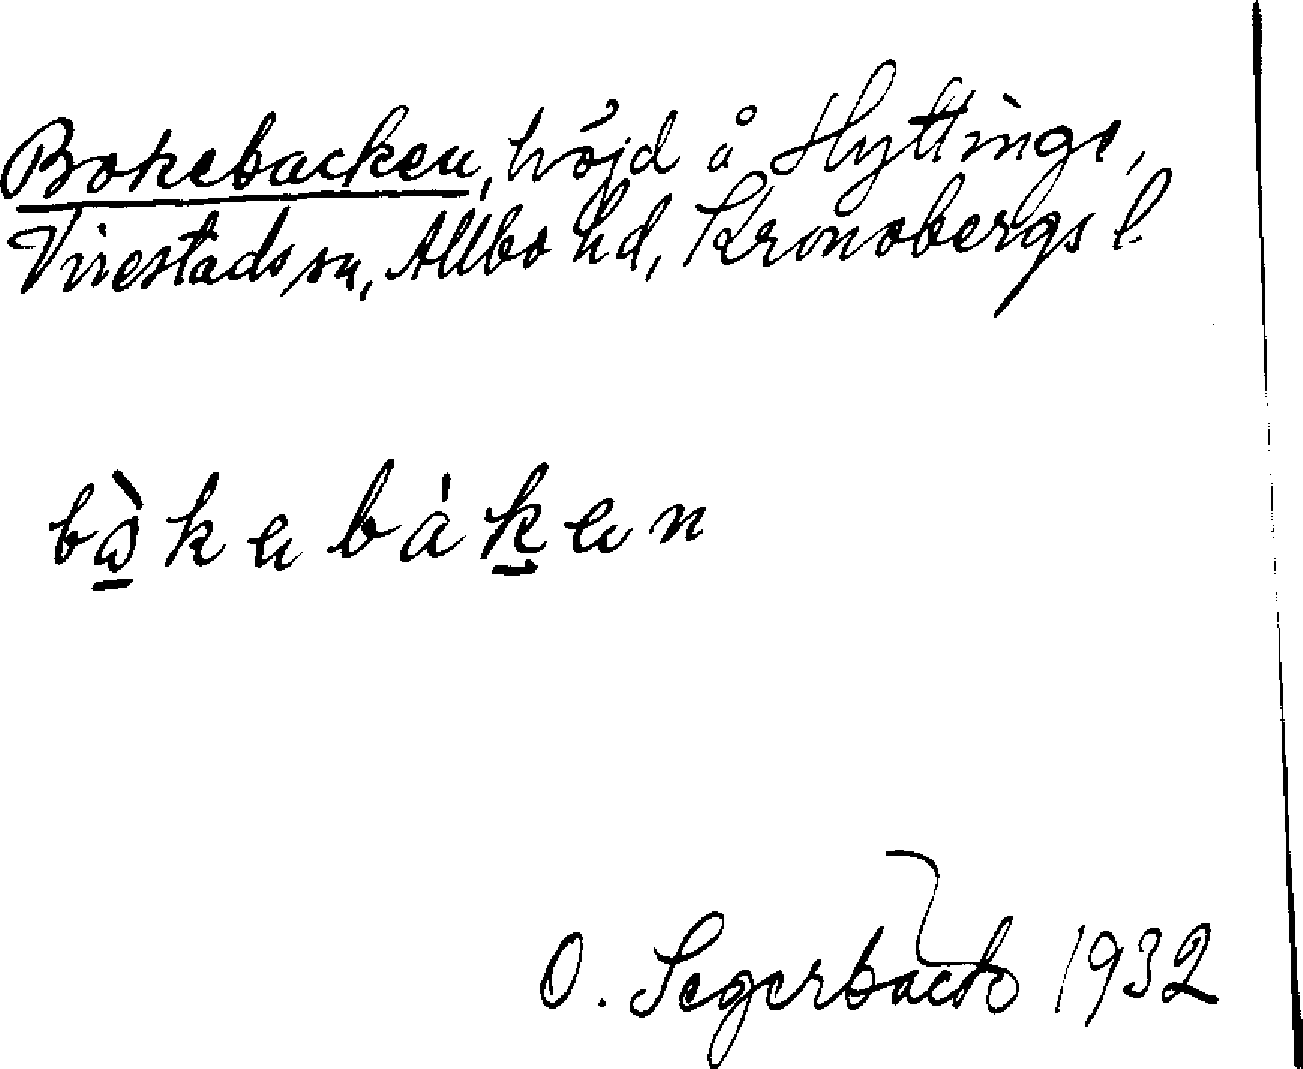 Bokebacken, höjd å Hyttinge,
Virestads sn, Allbo hd, Kronobergs l.
bò̱kebáḵen
O. Segerbäck 1932